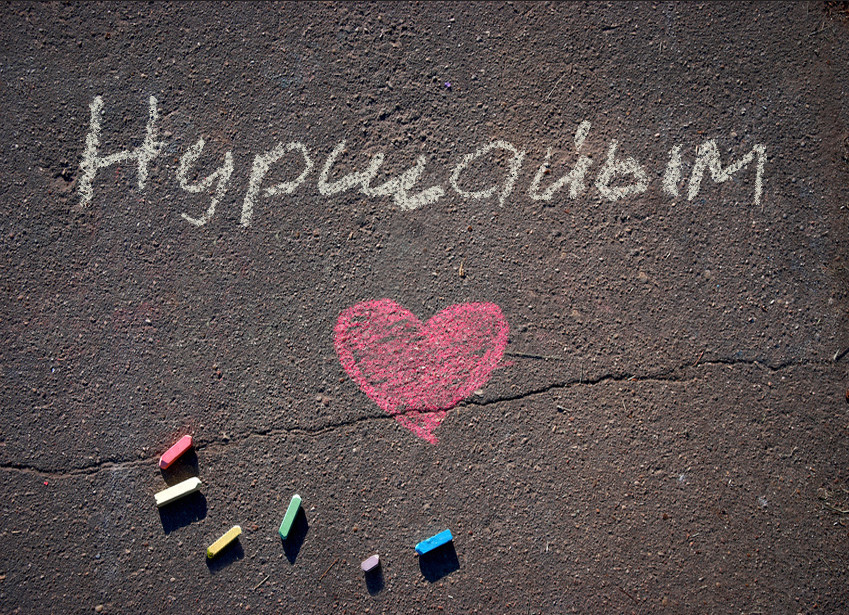 Нуршайым